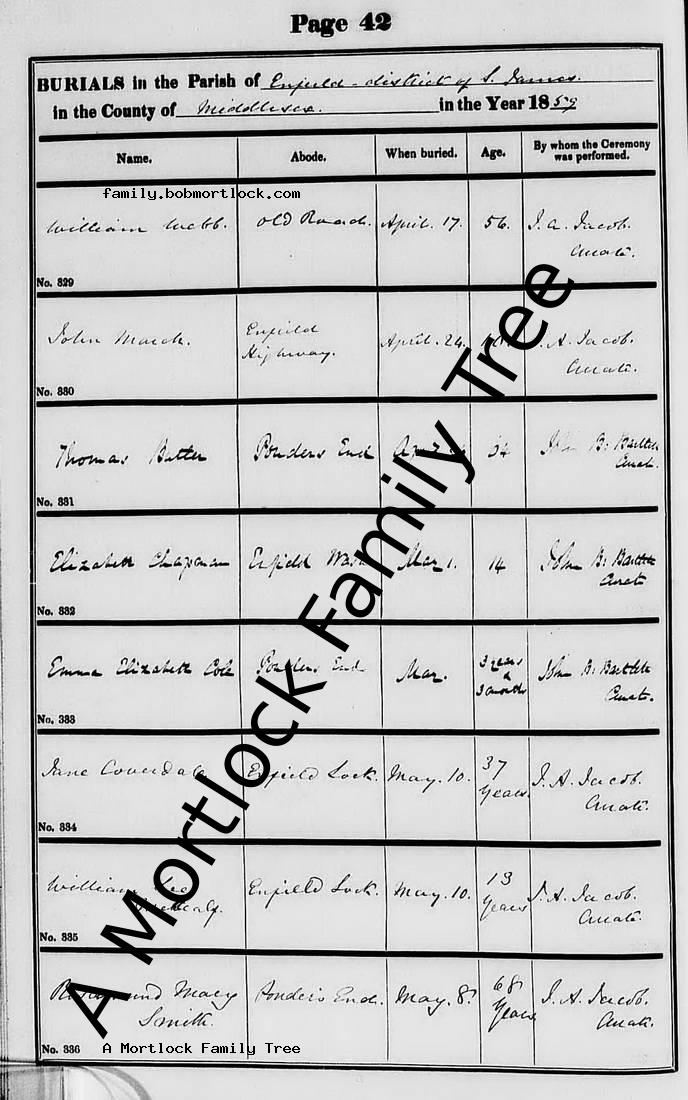 Page 42
BURIALS in the Parish of Enfield - district of S. James.
in the County of Middlesex. in the Year 1859
Name. Abode. When buried. Age. By whom the Ceremony was performed.
family.bobmortlock.com
William Webb. Old Road. April. 17. 56. J. A. Jacob.
Curate.
No. 329
John March. Enfield Highway. April. 24. A. Jacob.
Curate.
No. 330
Thomas Butter Ponders End 54 John B. Bartlett
Curate.
No. 331
Elizabeth Chapman Enfield Wash Mar 1. 14 John B. Bartlett
Curate
No. 332
Emma Elizabeth Cole Ponders End Mar. 3 years & 3 months John B. Bartlett
Curate.
No. 333
Jane Coverdale Enfield Lock. May. 10. 37 Years. J. A. Jacob.
Curate.
No. 334
William Lee Enfield Lock. May. 10. 13 Years J. A. Jacob.
Curate.
No. 335
Mary Ponders End. May. 8. 68 Years J. A. Jacob.
Smith. Curate.
No. 336
A Mortlock Family Tree
A Mortlock Family Tree